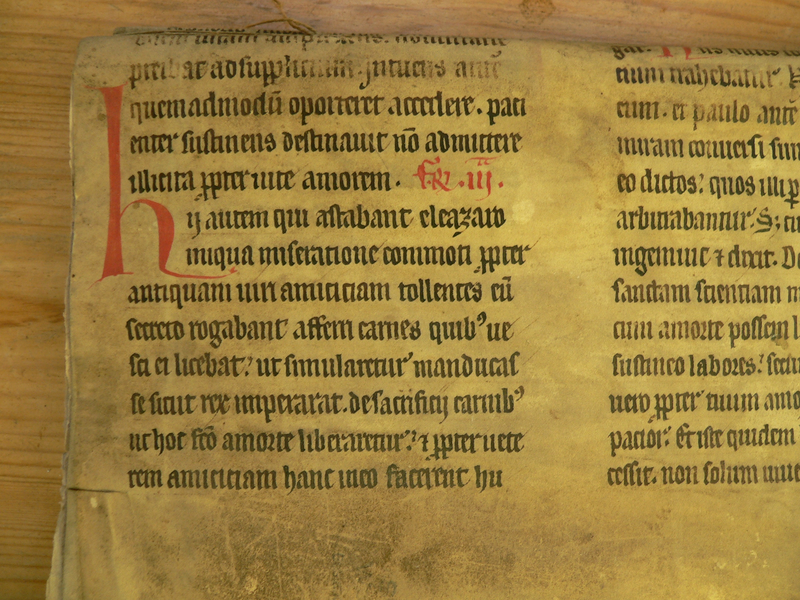 preibat ad supplicium. Intuens aut̄
quemadmodū oporteret accedere. pati
enter sustinens destinauit nō admittere
illicita ꝓpter uite amorem. iii.
hij autem qui astabant eleazaro
iniqua miseratione commoti ꝓpter
antiquam uiri amicitiam tollentes eū
secreto rogabant afferri carnes quibꝰ ue
sci ei licebat. ut simularetur manducas
se sicut rex imperarat. de sacrificij carnibꝰ
ut hoc fc̄o a morte liberaretur. ⁊ ꝓpter uete
rem amicitiam hanc in eo facerent hu
tium trahebatur
eum. et paulo ant̄e
miram conuersi sun
eo dictos. quos illi ꝑ
arbitrabantur.
ingemuit ⁊ dixit. D
sanctam scientiam
cum a morte possem l
sustineo labores.
uero ꝓpter tuum
patior. Et iste quidem
cessit. non solum